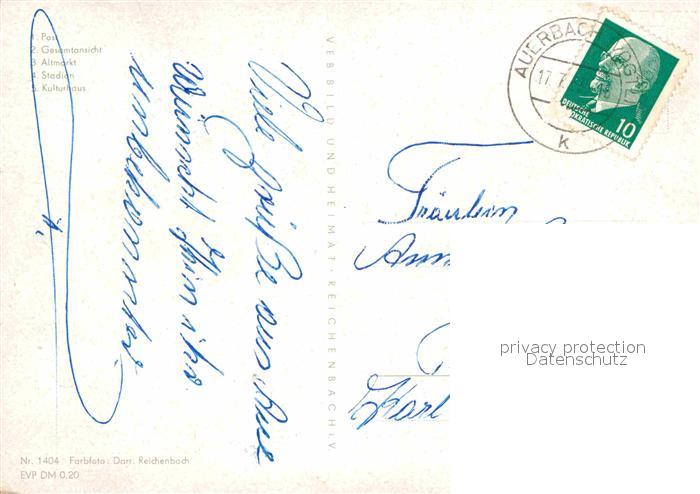 1. Post
2. Gesamtansicht
3. Altmarkt
4. Stadion
5. Kulturhaus
Viele Grüße aus Aue
wünscht Ihnen Ihr
unbekannter
VEB BILD UND HEIMAT · REICHENBACH i. V.
AUERBACH (VOGTL)
17.7.
k
DEUTSCHE
DEMOKRATISCHE REPUBLIK
10
Fräulein
privacy protection
Datenschutz
Nr. 1404 Farbfoto: Darr, Reichenbach
EVP DM 0.20